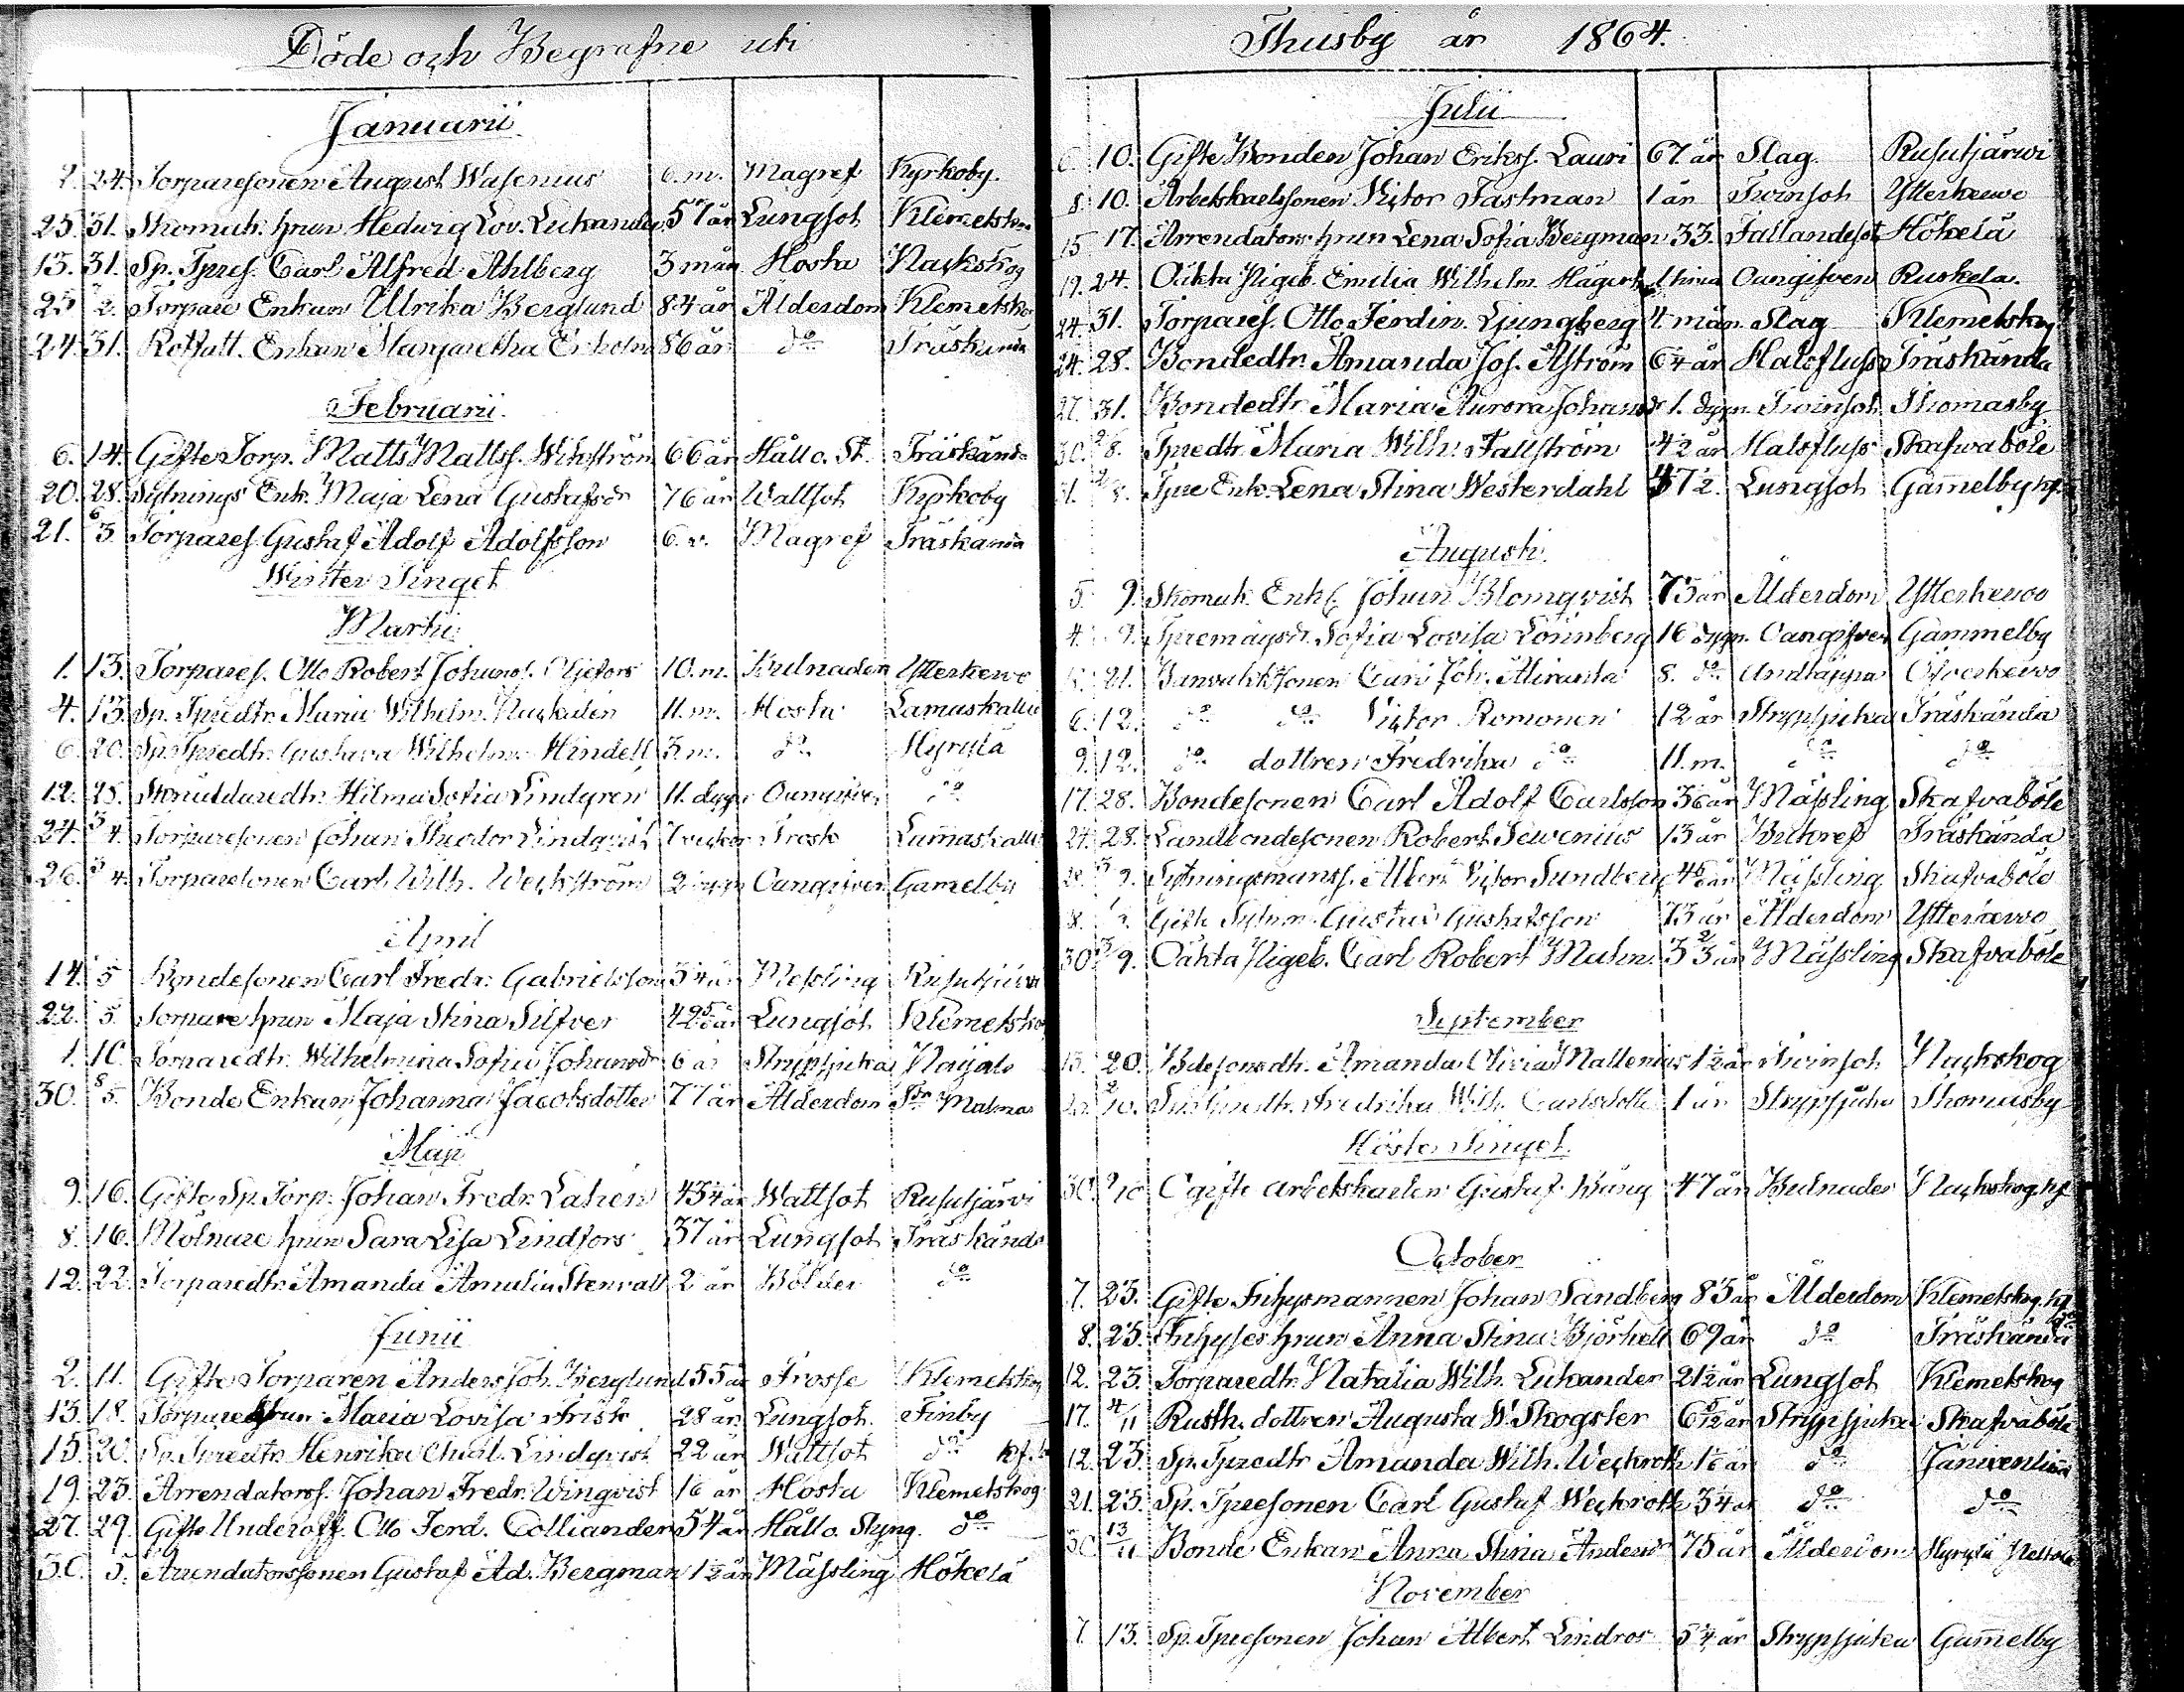 Döde och Begrafne uti
Januarii
2. 24. Torparesonen August Wasenius 6. m. Magref Kyrkoby.
25. 31. Skomak. hrun Hedwig Lov. Lukander 57 år Lungsot Klemetskog
13. 31. Sp. Tpres. Carl Alfred Ahlberg 3 mån Hosta Nackskog
25 2. Torpare Enkan Ulrika Berglund 84 år Ålderdom Klemetskog
24. 31. Rotfatt. Enkan Margaretha Ekholm 86 år do Träskända
Februarii.
6. 14. Gifte Torp. Matts Mattss. Wikström 66 år Håll o. St. Träskända
20. 28. Sytnings Enk. Maja Lena Gustafsdr 76 år Wattsot Kyrkoby
21. 6/3 Torpares. Gustaf Adolf Adolfsson 6. v. Magref Träskända
Winter Tinget
Martii
1. 13. Torpares. Otto Robert Johans. 10. m. Bulnaden Ytterkervo
4. 13. Sp. Tpredtr. Maria Wilhelm. 11. m. Hosta Lamaskallio
6. 20. Sp. Tpredtr. Gustava Wilhelm. Hindell 3 m. do Hyrylä
12. 28. Skräddaredtr. Hilma Sofia Lindgren 11. dygn Oangifven do
24. 3/4. Torparesonen Johan Theodor Lindqvist 7 veckor Trosk Lamaskallio
26. 3/4. Torparesonen Carl Wilh. Weckström 2 dygn Oangifven Gamelby
April
14. 5 Bondesonen Carl Fredr. Gabrielsson 3/4 år Messling Rusutjärvi
22. 5. Torpare hrun Maja Stina Silfver Lungsot Klemetskog
1. 10. Torparedtr. Wilhelmina Sofia Johansdr 6 år Strypsjuka
30. 8/5. Bonde Enkan Johanna Jacobsdotter 77 år Ålderdom
Maji
9. 16. Gifte Sp. Torp. Johan Fredr. Lahén 43 1/4 år Wattsot Rusutjärvi
8. 16. Mölnare hrun Sara Lisa Lindfors 37 år Lungsot Träskända
12. 22. Torparedtr. Amanda Amalia Stenvall 2 år Bölder do
Junii
2. 11. Gifte Torparen Anders Joh. Berglund 55 år Frosse Klemetskog
13. 18. Torpare hrun Maria Lovisa Frisk 28 år Lungsot. Finby
15. 20. Sp. Tpredtr. Henrika Charl. Lindqvist 22 år Wattsot do
19. 23. Arrendators. Johan Fredr. Winqvist 16 år Hosta Klemetskog
27. 29. Gifte Underoff. Otto Ferd. Colliander 54 år Håll o. Styng. do
30. 5. Arrendatorssonen Gustaf Ad. Bergman 1 1/2 år Mässling Hökelä
Thusby år 1864.
Julii
6. 10. Gifte Bonden Johan Erikss. Lauri 67 år Slag. Rusutjärwi
8. 10. Arbetskarlssonen Victor Fastman 1 år Twinsot Ytterkerwo
15 17. Arrendators hrun Lena Sofia Bergman 33. Fallandesot Hökelä
19. 24. Oäkta Pigeb. Emilia Wilhelm. Hägert Oangifven Ruskela.
24. 31. Torpares. Otto Ferdin. Ljungberg 4. mån. Slag Klemetskog
24. 28. Bondedtr. Amanda Jos. Åström 6 1/4 år Halsfluss Träskända
27. 31. Bondedtr. Maria Aurora Johansdr 1. dygn. Twinsot Thomasby
30. 2/8. Tpredtr. Maria Wilh. Fallström 4 1/2 år Halsfluss Skafvaböle
31. 2/8. Tpre Enk. Lena Stina Westerdahl Lungsot Gammelby
Augusti.
5. 9. Skomak. Enkl. Johan Blomqvist 73 år Ålderdom Ytterkerwo
4. 9. Tpremågsdr. Sofia Lovisa Lönnberg 16 dygn. Oangifven Gammelby
21. Carl Joh. 8. do Andtäppa Öfverkervo
6. 12. do do Victor Romonen 12 år Strypsjuka Träskända
9. 12. do dottren Fredrika do 11. m. do do
17. 28. Bondesonen Carl Adolf Carlsson 3 6/12 år Mässling Skafvaböle
24. 28. Landbondesonen Robert Sevenius 13 år Bukref Träskända
28. 3/9. Sytningsmanss. Albert Victor Sundberg Mässling Skafvaböle
Gifte Sytnm. Gustaf Gustafsson 73 år Ålderdom Ytterkervo
30. 3/9. Oäkta Pigeb. Carl Robert Malm Mässling Skafvaböle
September
13. 20. Bdesonsdtr. Amanda Olivia Mattenius 1 1/2 år Twinsot Nackskog
2/10. Fredrika Wilh. Carlsdotter 1 år Strypsjuka Thomasby
Höste Tinget.
30. 9/10 Ogifte Arbetskarlen Gustaf Bång 47 år Bulnader Nackskog kf.
October
7. 23. Gifte Inhysmannen Johan Sandberg 83 år Ålderdom Klemetskog. kf.
8. 23. Inhyses hrun Anna Stina Björkell 69 år do Träskända
12. 23. Torparedtr. Natalia Wilh. Lukander 21 1/2 år Lungsot Klemetskog
17. 4/11 Rusth. dottren Augusta W. Skogster Strypsjuka Skafvaböle
12. 23. Sp. Tpredtr. Amanda Wilh. Weckroth do
21. 23. Sp. Tpresonen Carl Gustaf Weckroth 3/4 år do do
30. 13/11 Bonde Enkan Anna Stina Andersdr 75 år Ålderdom Hyrylä
November
7. 13. Sp. Tpresonen Johan Albert Lindros 5 1/4 år Strypsjuka Gammelby